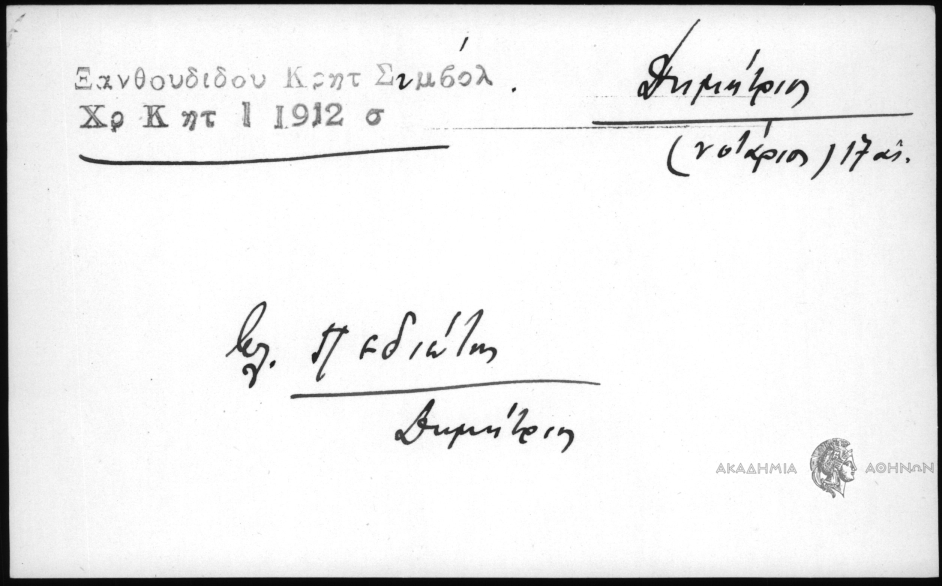 Ξανθουδιδου Κρητ Συμβόλ.
Χρ Κ ητ 1 1912 σ
Δημήτριος
(νοτάριος) 17 αἰ.
βλ. Πεδιώτης
Δημήτριος
ΑΚΑΔΗΜΙΑ ΑΘΗΝΩΝ